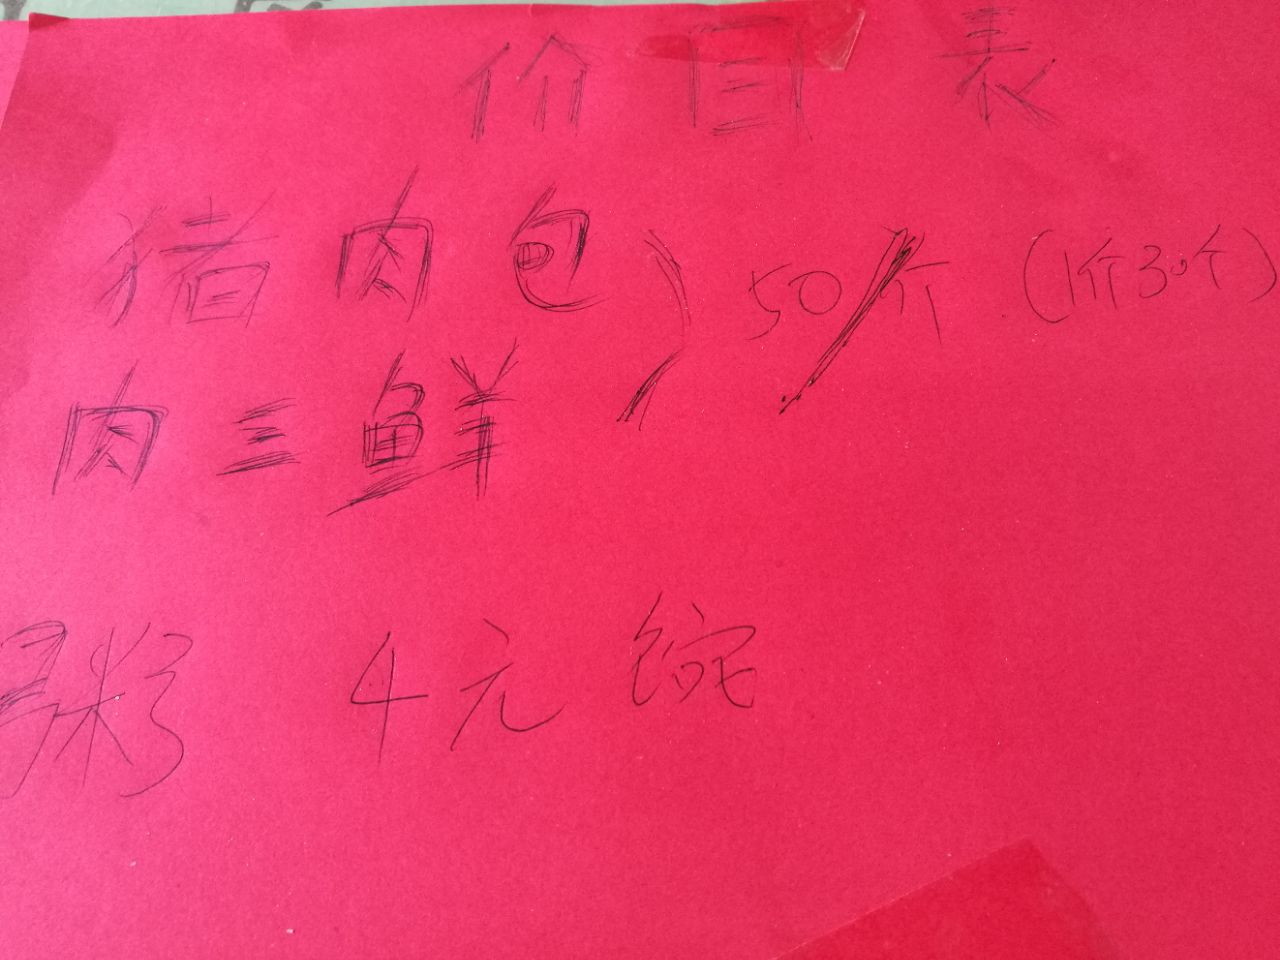 价目表
猪肉包 ) 50/个 (1个30个)
肉三鲜
粥 4元